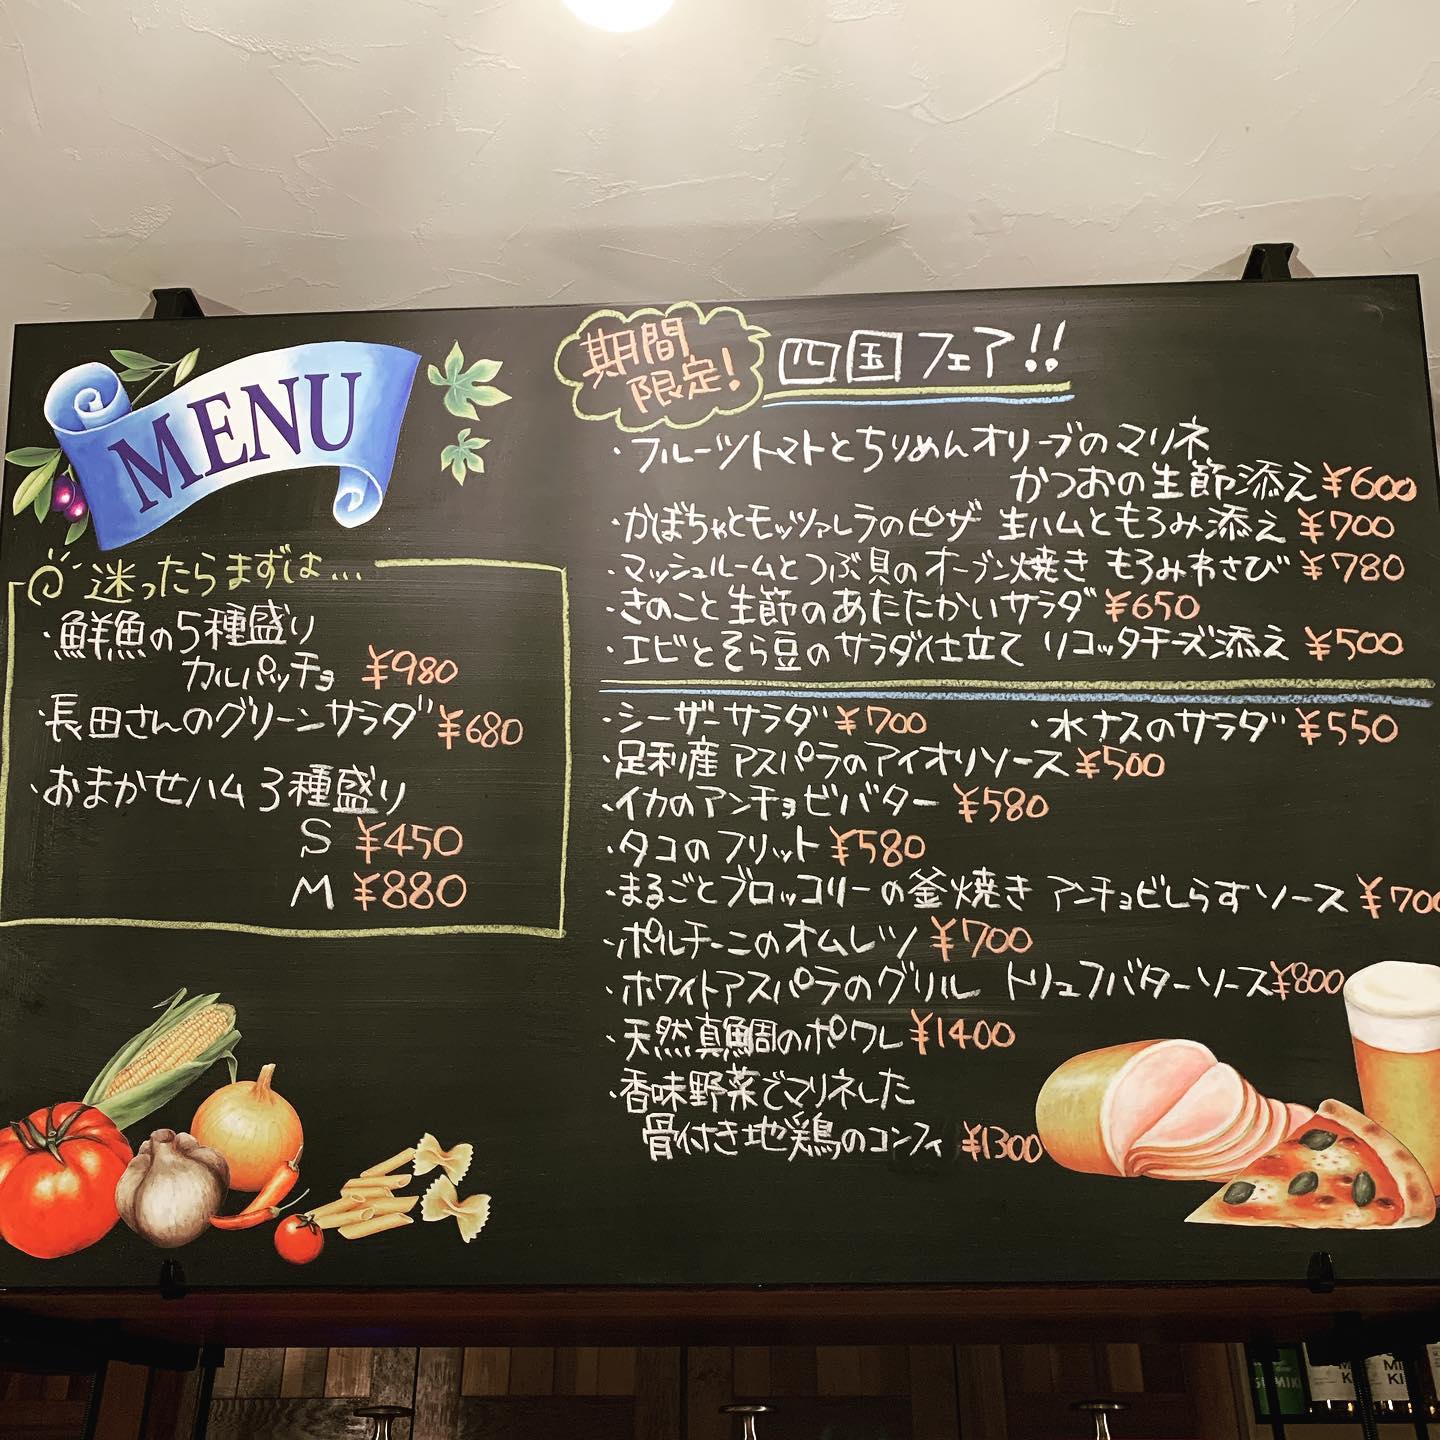 MENU
迷ったらまずは...
・鮮魚の5種盛り
カルパッチョ ¥980
・長田さんのグリーンサラダ ¥680
・おまかせハム3種盛り
S ¥450
M ¥880
期間
限定!
四国フェア!!
・フルーツトマトとちりめんオリーブのマリネ
かつおの生節添え ¥600
・かぼちゃとモッツァレラのピザ 生ハムともろみ添え ¥700
・マッシュルームとつぶ貝のオーブン焼き もろみわさび ¥780
・きのこと生節のあたたかいサラダ ¥650
・エビとそら豆のサラダ仕立て リコッタチーズ添え ¥500
・シーザーサラダ ¥700 ・水ナスのサラダ ¥550
・足利産アスパラのアイオリソース ¥500
・イカのアンチョビバター ¥580
・タコのフリット ¥580
・まるごとブロッコリーの釜焼き アンチョビしらすソース ¥700
・ポルチーニのオムレツ ¥700
・ホワイトアスパラのグリル トリュフバターソース ¥800
・天然真鯛のポワレ ¥1400
・香味野菜でマリネした
骨付き地鶏のコンフィ ¥1300